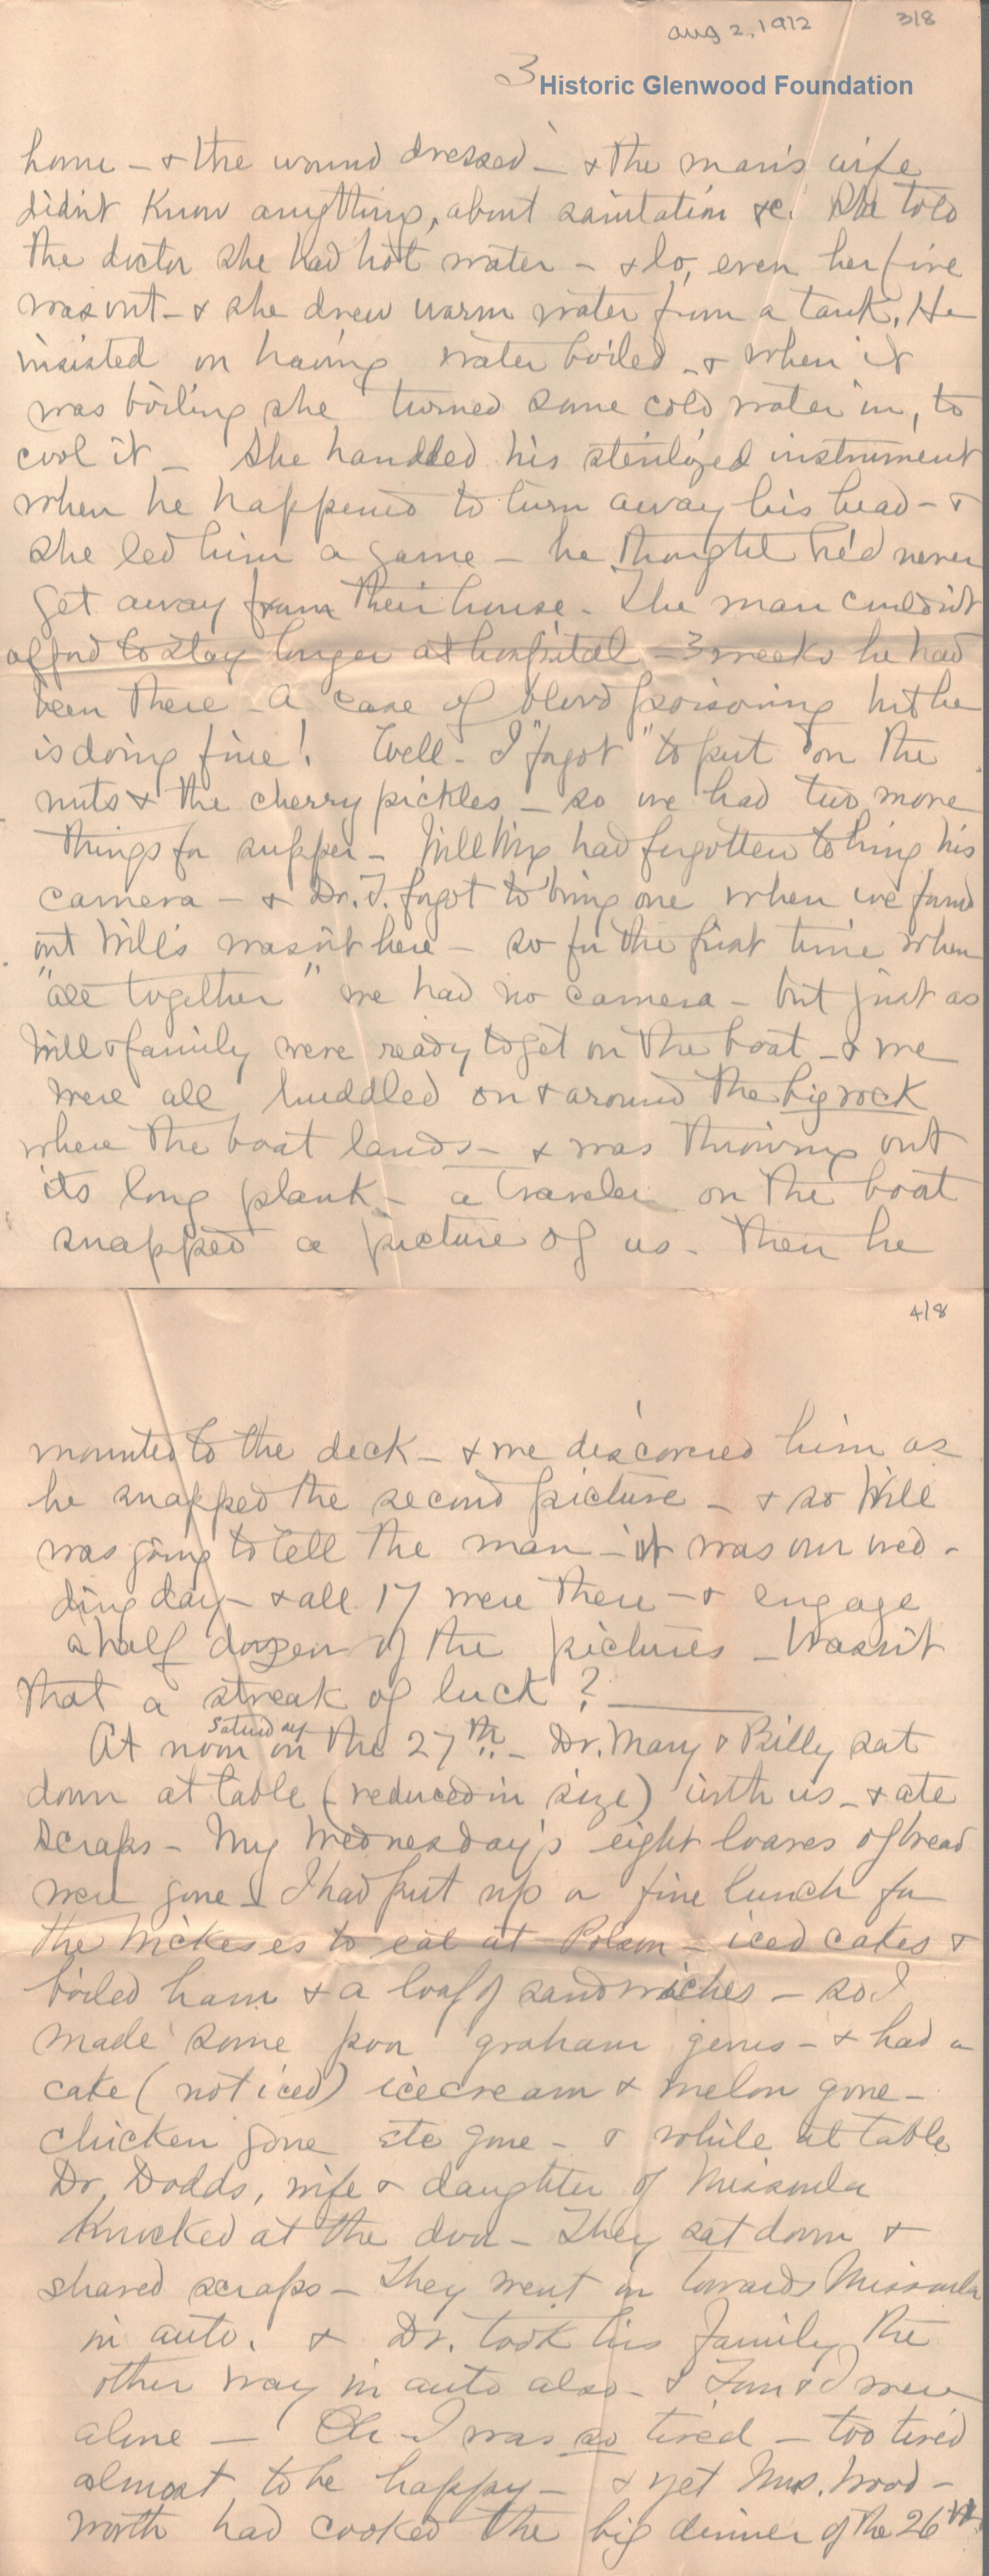 aug 2, 1912 3/8
3
Historic Glenwood Foundation
home - & the wound dressed - & the man's wife
didn't know anything, about sanitation &c. She told
the doctor she had hot water - & lo, even her fire
was out - & she drew warm water from a tank. He
insisted on having water boiled - & when it
was boiling she turned some cold water in, to
cool it - She handled his sterilized instrument
when he happened to turn away his head - &
she led him a game - he thought he'd never
get away from their house - The man couldn't
afford to stay longer at hospital - 3 weeks he had
been there - A case of blood poisoning but he
is doing fine! Well - I "forgot" to put on the
nuts & the cherry pickles - so we had two more
things for supper - Will had forgotten to bring his
camera - & Dr. T. forgot to bring one when we found
out Will's wasn't here - so for the first time when
"all together" we had no camera - but just as
Will & family were ready to get on the boat - & we
were all huddled on & around the big rock
where the boat lands - & was throwing out
its long plank - a traveler on the boat
snapped a picture of us - Then he
4/8
mounted to the deck - & we discovered him as
he snapped the second picture - & so Will
was going to tell the man - it was our wed-
ding day - & all 17 were there - & engage
a half dozen of the pictures - Wasn't
that a streak of luck?
At noon Saturday on the 27th - Dr. Mary & Billy sat
down at table (reduced in size) with us - & ate
scraps - My Wednesday's eight loaves of bread
were gone & I had put up a fine lunch for
the to eat at Polson - iced cakes &
boiled ham & a loaf of sandwiches - so I
made some poor graham gems - & had a
cake (not iced) icecream & melon gone -
chicken gone etc gone - & while at table
Dr. Dodds, wife & daughter of Missoula
knocked at the door - They sat down &
shared scraps - They went on towards Missoula
in auto. & Dr. took his family the
other way in auto also - & & I were
alone - Oh - I was so tired - too tired
almost to be happy - & yet Mrs. Wood-
worth had cooked the big dinner of the 26th.